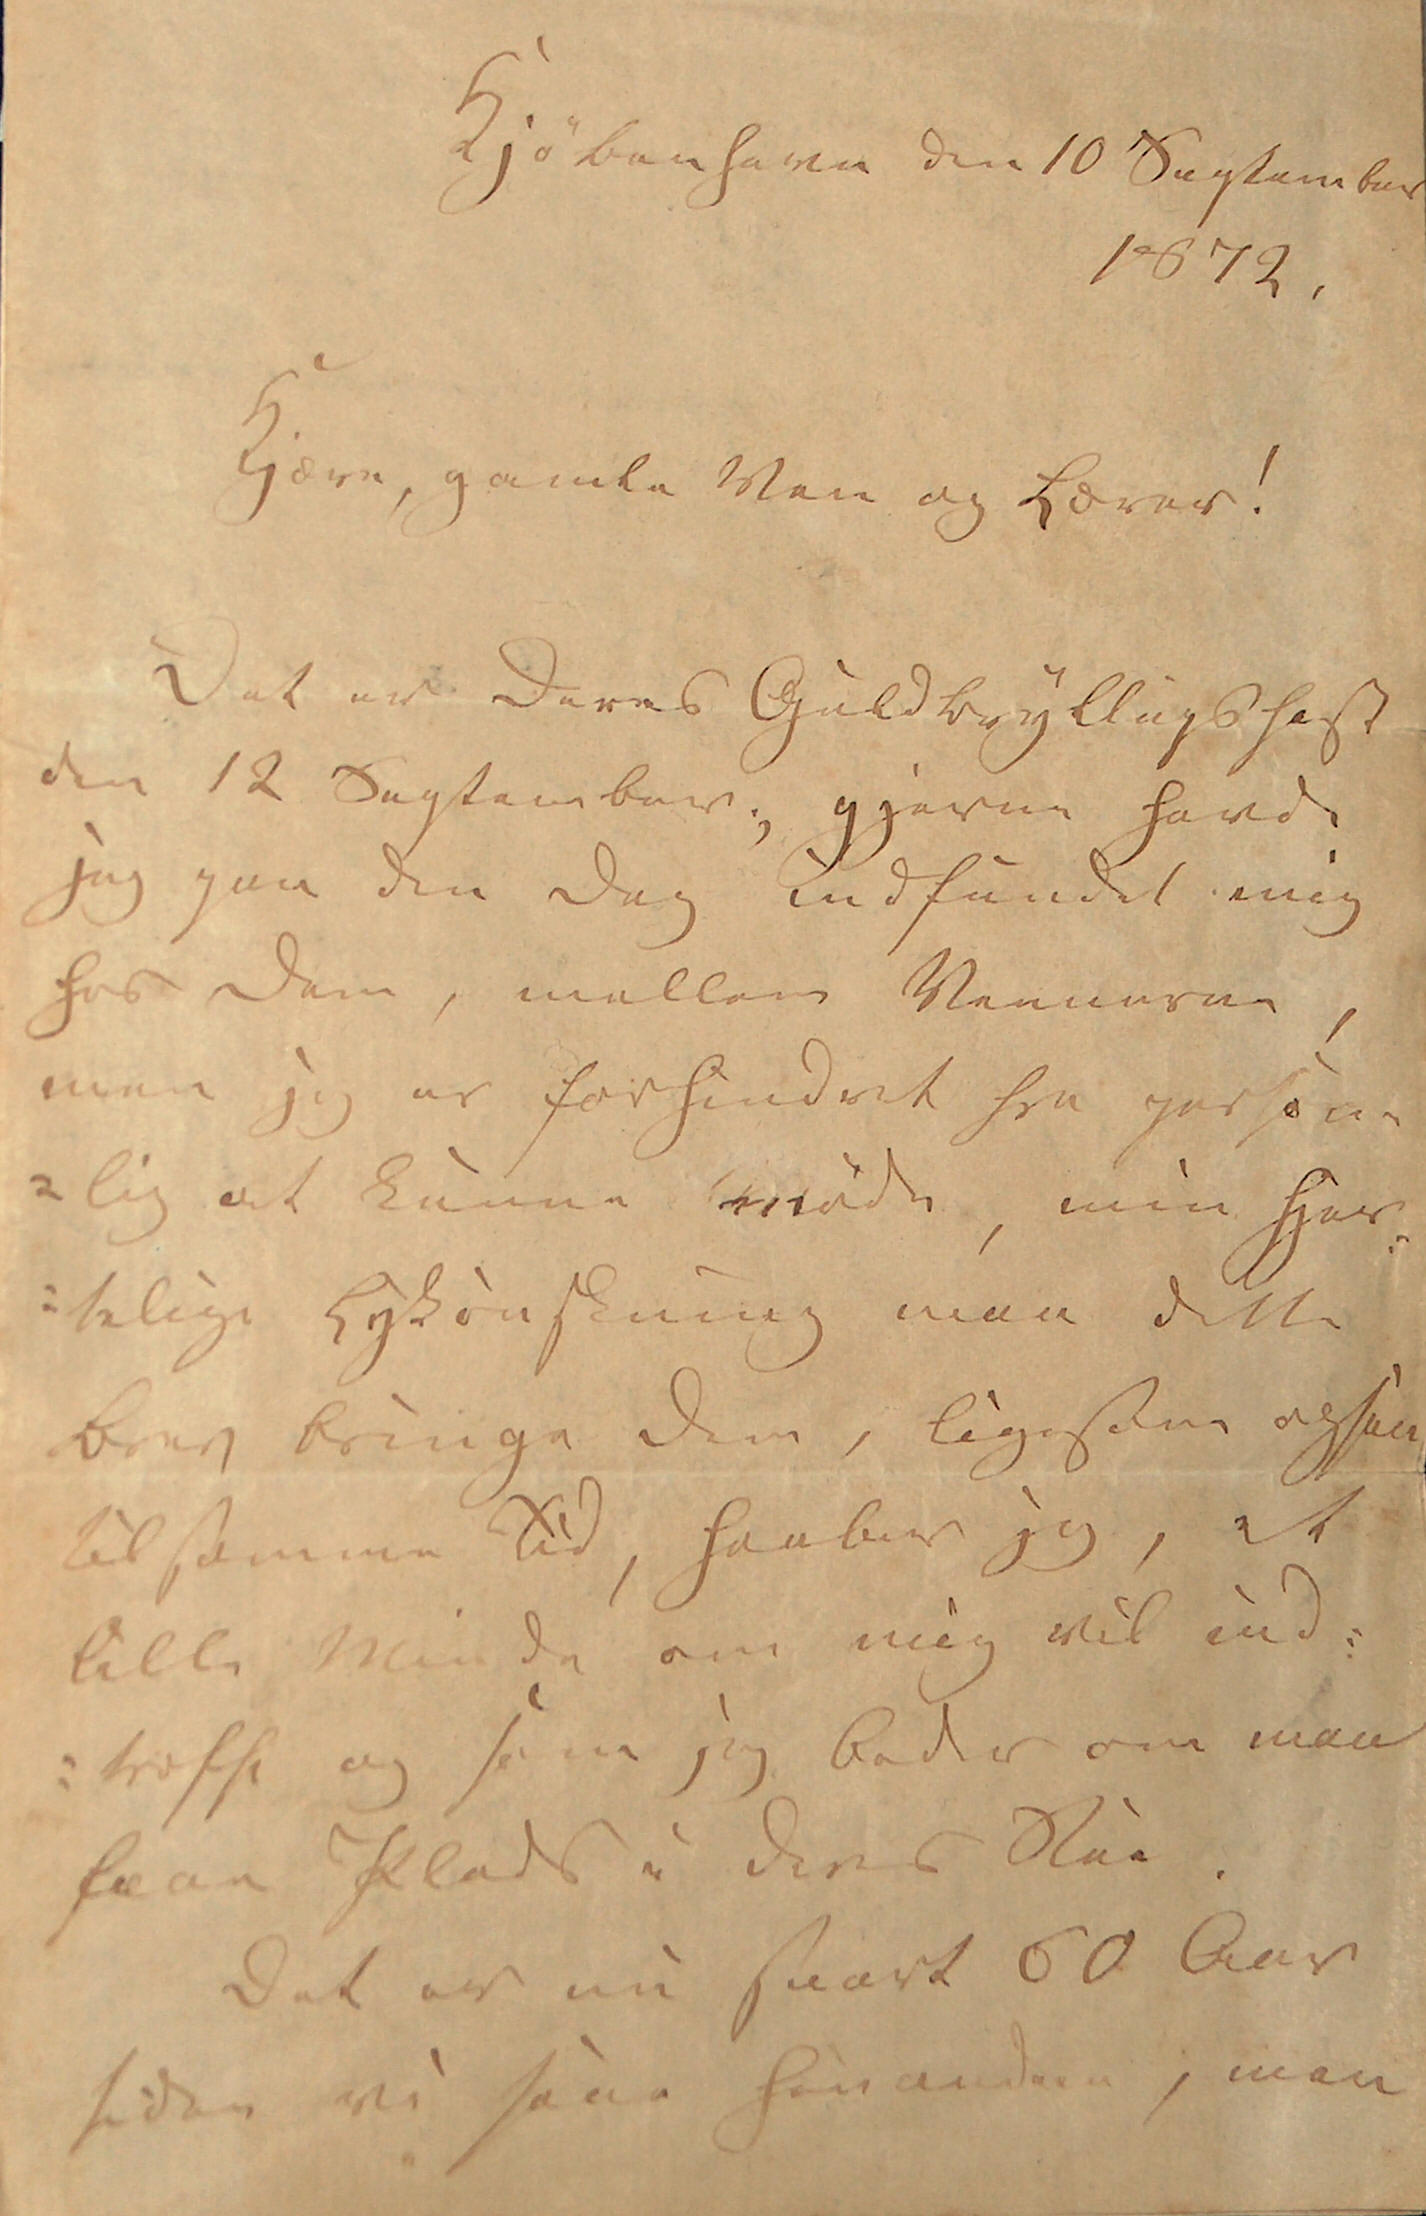 Kjöbenhavn den 10 September
1872.
Kjære, gamle Ven og Lærer!
Det er Deres Guldbryllupsfest
den 12 September; gjerne havde
jeg paa den Dag indfundet mig
hos Dem, mellem Vennerne,
men jeg er forhindret fra person-
=lig at kunne möde, min hjer=
=telige Lykönskning maa dette
Brev bringe Dem, ligesom ogsaa
til samme Tid, haaber jeg, et
lille Minde om mig vil ind=
=træffe og som jeg beder om maa
faae Plads i Deres Stue.
Det er nu snart 60 Aar
siden vi saae hinanden, men